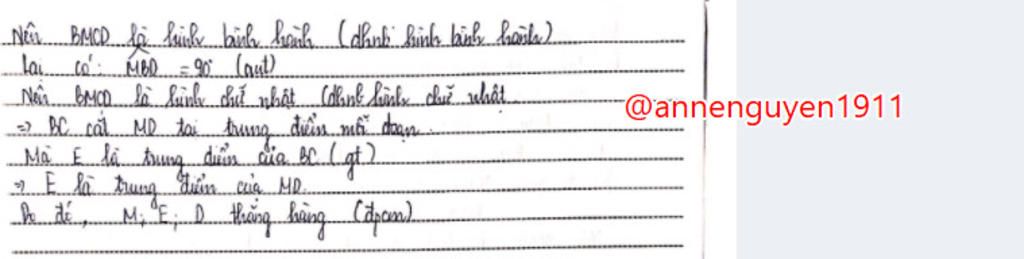 Nên BMCD là hình bình hành (dhnb hình bình hành)
Lại có: MBD = 90° (cmt)
Nên BMCD là hình chữ nhật (dhnb hình chữ nhật
@annenguyen1911
=> BC cắt MD tại trung điểm mỗi đoạn.
Mà E là trung điểm của BC (gt)
=> E là trung điểm của MD.
Do đó, M; E; D thẳng hàng (đpcm)